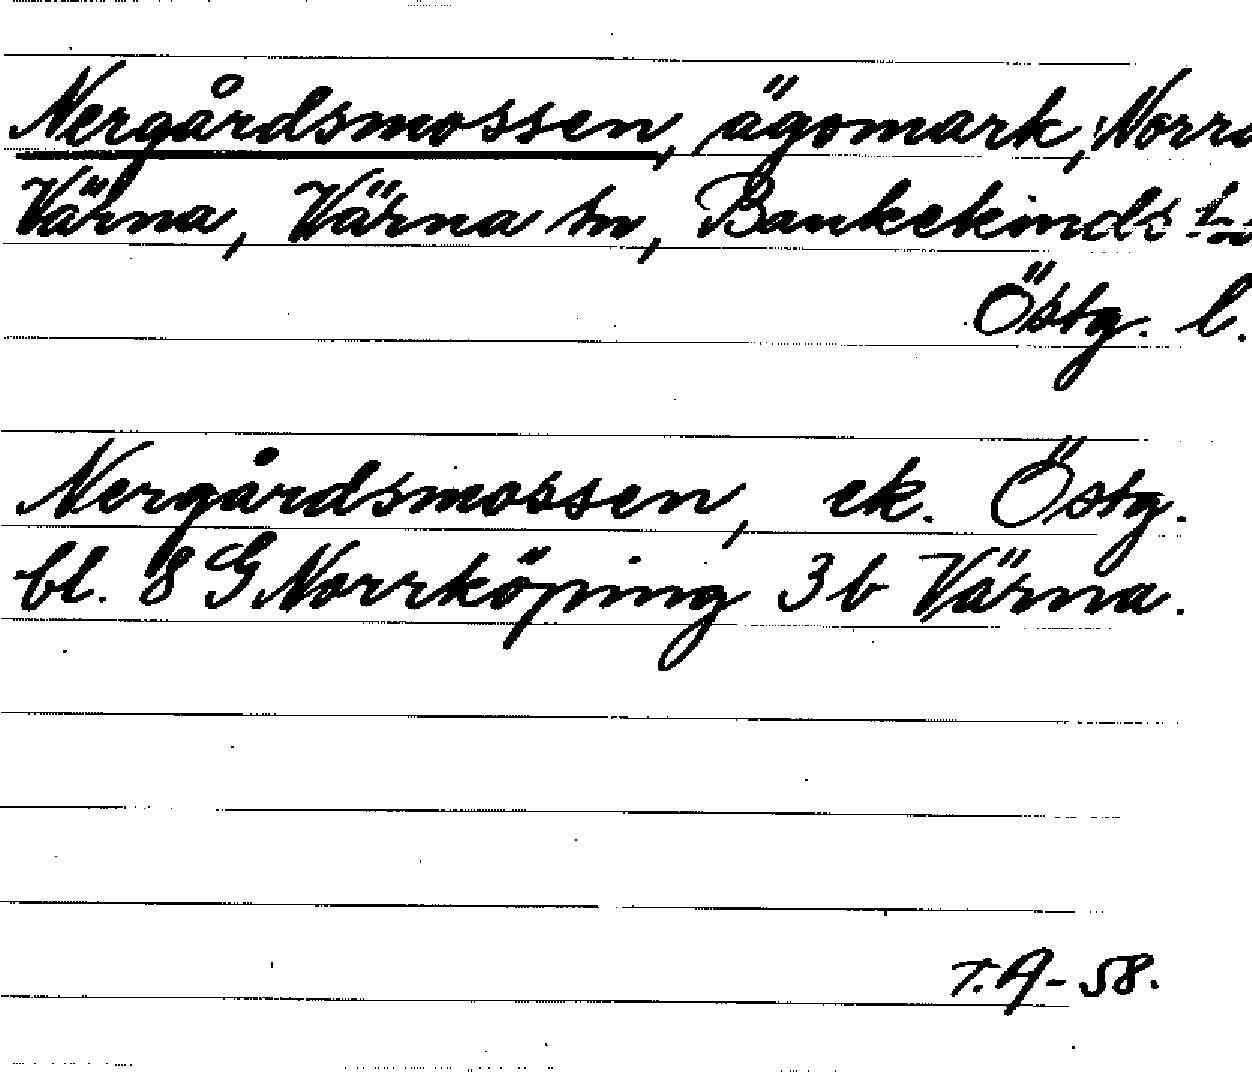 Nergårdsmossen, ägomark, Norra
Värna, Värna sn, Bankekinds
Östg. l.
Nergårdsmossen, ek. Östg.
bl. 8 G Norrköping 3 b Värna.
T.A-58.